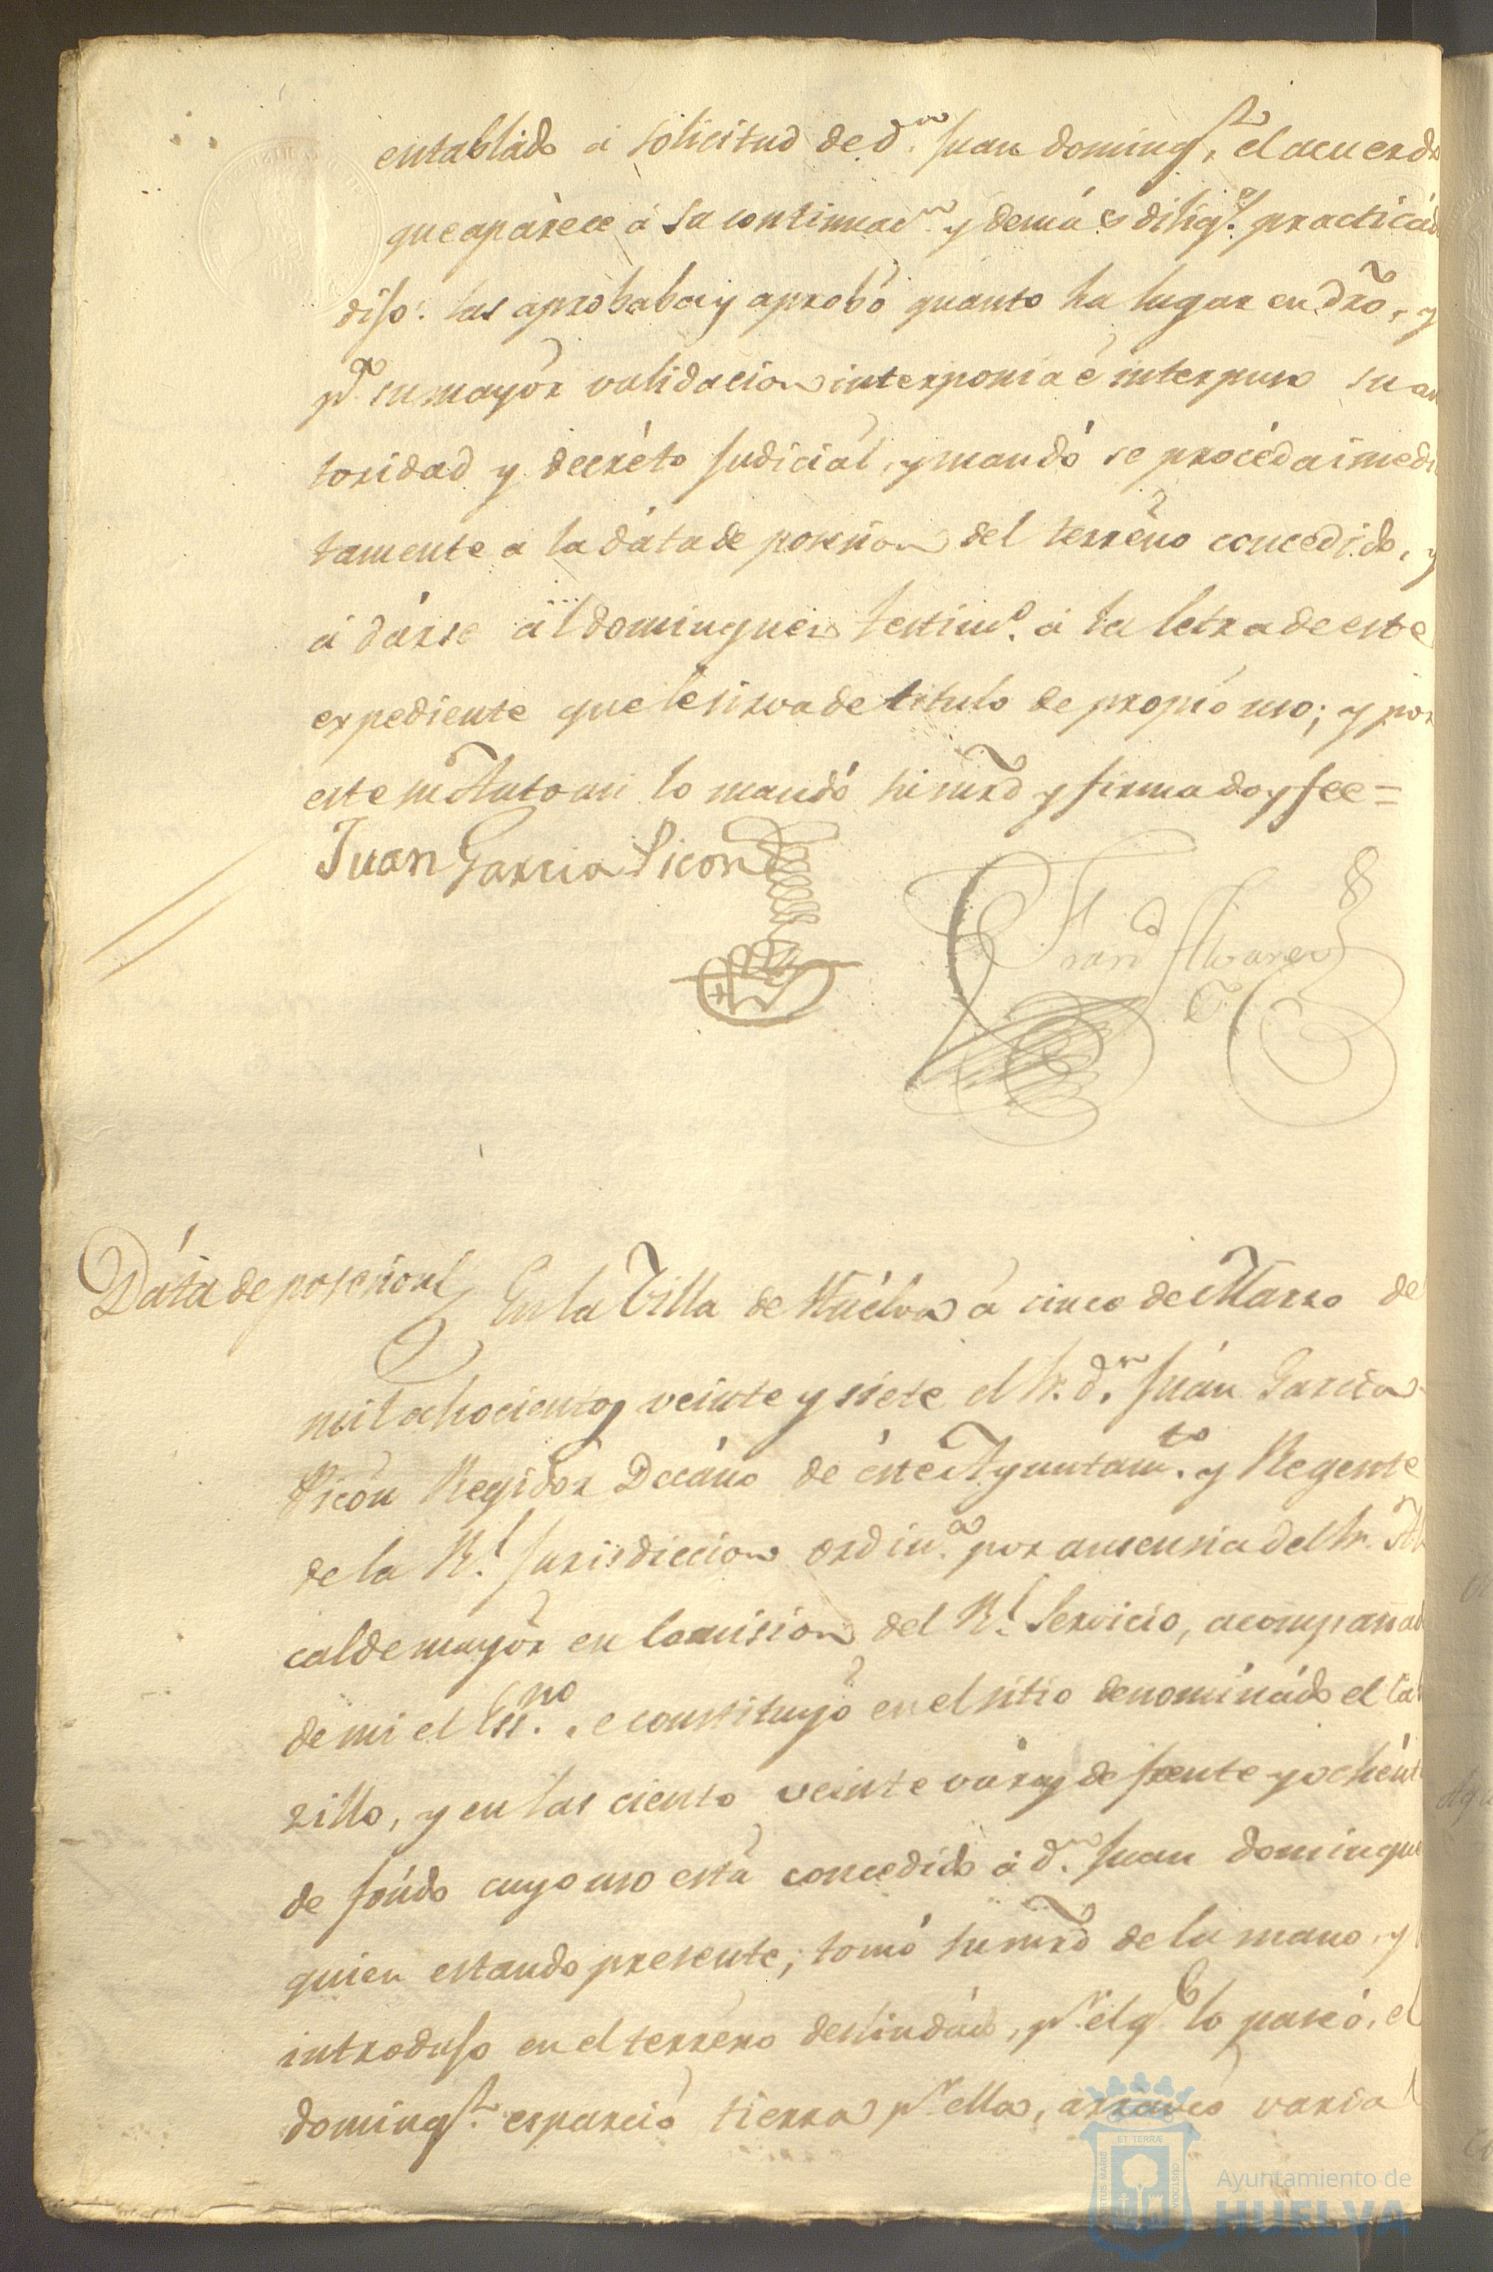 entablado a solicitud de d.n Juan doming.z, el acuerdo
que aparece a su continuac.n y demás dilig.s practicad
dijo: las aprobaba y aprobó quanto ha lugar en dro, y
p.a su mayor validacion interponia é interpuso su au
toridad y decréto Judiciál, y mandó se procéda imedi
tamente a la dáta de posesion del terréno concedido, y
á dárse al dominguez testim.o á la letra de este
expediente que le sirva de titulo de propio uso; y por
este su Auto asi lo mandó su mrd y firma doy fee =
Juan Garcia Picon
Fran.co Alvarez
Dáta de posesion En la Villa de Huélva á cinco de Marzo de
mil ochocientos veinte y siete el Sr. d.n Juán Garcia
Picón Regidor Decáno de éste Ayuntam.to y Regente
de la R.l Jurisdiccion ordin.a por ausensia del Sr. Al
calde mayór en Comision del R.l Servicio, acompañad
de mi el Ess.no se constituyó en el sitio denominádo el Ca
rillo, y en las ciento veinte váras de frente y ochént
de fóndo cuyo uso está concedido á d.n Juan domingue
quien estando presente; tomó su mrd de la mano, y
introdujo en el terréno deslindádo, p.r el q.e lo paseó, el
doming.z esparció tierra p.r ella, arrancó varia
ET TERRÆ
PORTUS MARIS
CUSTODIA
Ayuntamiento de
HUELVA